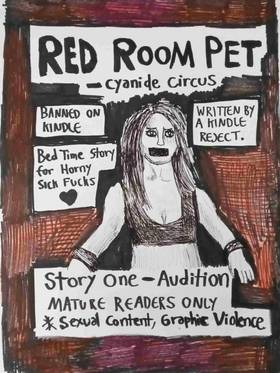 RED ROOM PET
— cyanide circus
BANNED ON
KINDLE
WRITTEN BY
A KINDLE
REJECT.
Bed Time Story
for Horny
Sick Fucks
♥
Story One – Audition
MATURE READERS ONLY
* Sexual Content, Graphic Violence